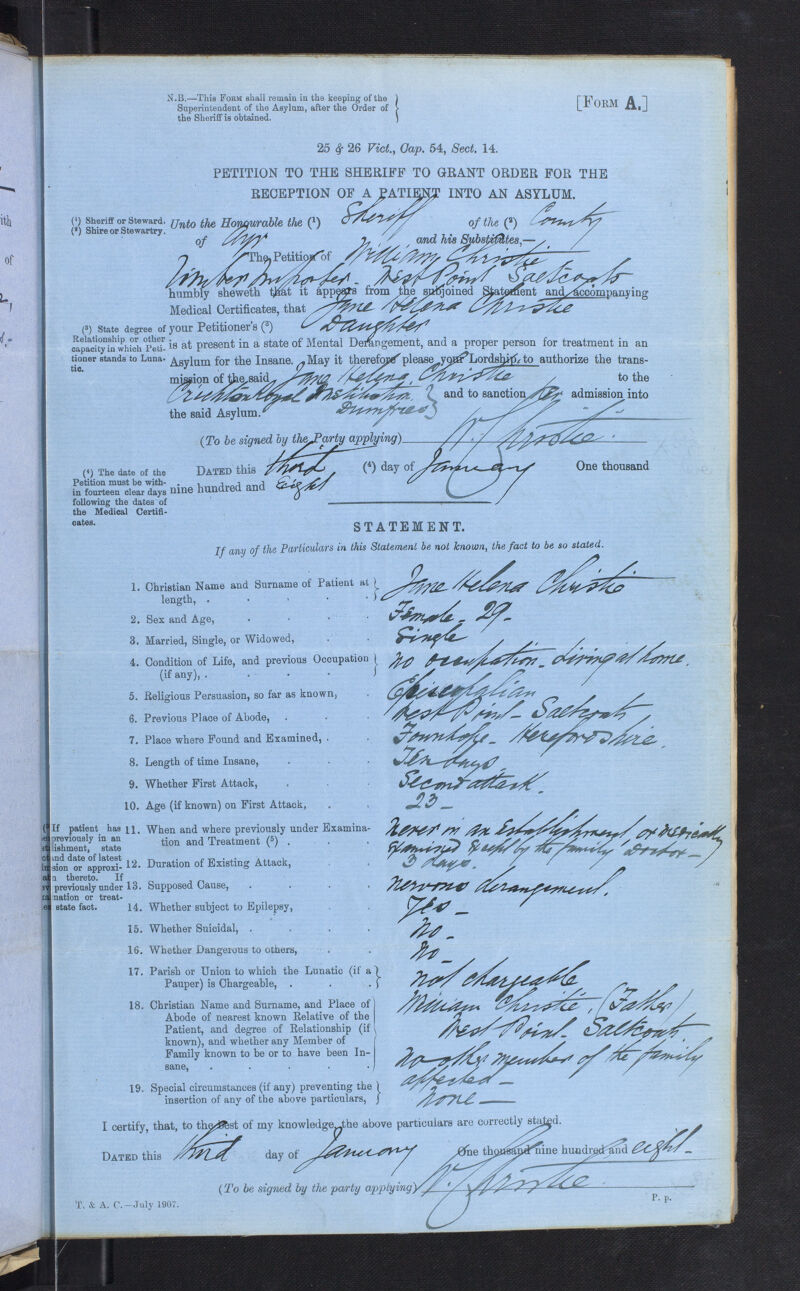 N.B.—This Form shall remain in the keeping of the
Superintendent of the Asylum, after the Order of
the Sheriff is obtained.
[Form A.]
25 & 26 Vict., Cap. 54, Sect. 14.
PETITION TO THE SHERIFF TO GRANT ORDER FOR THE
RECEPTION OF A PATIENT INTO AN ASYLUM.
(1) Sheriff or Steward.
(2) Shire or Stewartry.
Unto the Honourable the (1) Sheriff of the (2) County
of Ayr and his Substitutes,—
The Petition of William Christie
Timber Importer - West Point Saltcoats
humbly sheweth that it appears from the subjoined Statement and accompanying
Medical Certificates, that Jane Helena Christie
(3) State degree of
Relationship or other
capacity in which Peti-
tioner stands to Luna-
tic.
your Petitioner's (3) Daughter
is at present in a state of Mental Derangement, and a proper person for treatment in an
Asylum for the Insane. May it therefore please your Lordship to authorize the trans-
mission of the said Jane Helena Christie to the
Crichton Royal Institution Dumfries and to sanction her admission into
the said Asylum.
(To be signed by the Party applying) W. Christie
(4) The date of the
Petition must be with-
in fourteen clear days
following the dates of
the Medical Certifi-
cates.
Dated this third (4) day of January One thousand
nine hundred and Eight
STATEMENT.
If any of the Particulars in this Statement be not known, the fact to be so stated.
1. Christian Name and Surname of Patient at
length, . Jane Helena Christie
2. Sex and Age, Female - 29 -
3. Married, Single, or Widowed, Single
4. Condition of Life, and previous Occupation
(if any), . no occupation - living at home.
5. Religious Persuasion, so far as known, Episcopalian
6. Previous Place of Abode, West Point - Saltcoats
7. Place where Found and Examined, Fownhope - Herefordshire.
8. Length of time Insane, Ten days
9. Whether First Attack, Second attack.
10. Age (if known) on First Attack, 23 -
If patient has
previously in an
lishment, state
and date of latest
sion or approxi-
thereto. If
previously under
nation or treat-
state fact.
11. When and where previously under Examina-
tion and Treatment (5) . never in an Establishment, or medically
examined except by the family Doctor -
12. Duration of Existing Attack, 3 days.
13. Supposed Cause, nervous derangement.
14. Whether subject to Epilepsy, Yes -
15. Whether Suicidal, . No -
16. Whether Dangerous to others, No -
17. Parish or Union to which the Lunatic (if a
Pauper) is Chargeable, . not chargeable
18. Christian Name and Surname, and Place of
Abode of nearest known Relative of the
Patient, and degree of Relationship (if
known), and whether any Member of
Family known to be or to have been In-
sane, .
William Christie. (Father)
West Point - Saltcoats.
No other member of the family
affected -
19. Special circumstances (if any) preventing the
insertion of any of the above particulars, none —
I certify, that, to the best of my knowledge, the above particulars are correctly stated.
Dated this third day of January One thousand nine hundred and eight -
(To be signed by the party applying) W. Christie
T. & A. C.—July 1907.
P. p.